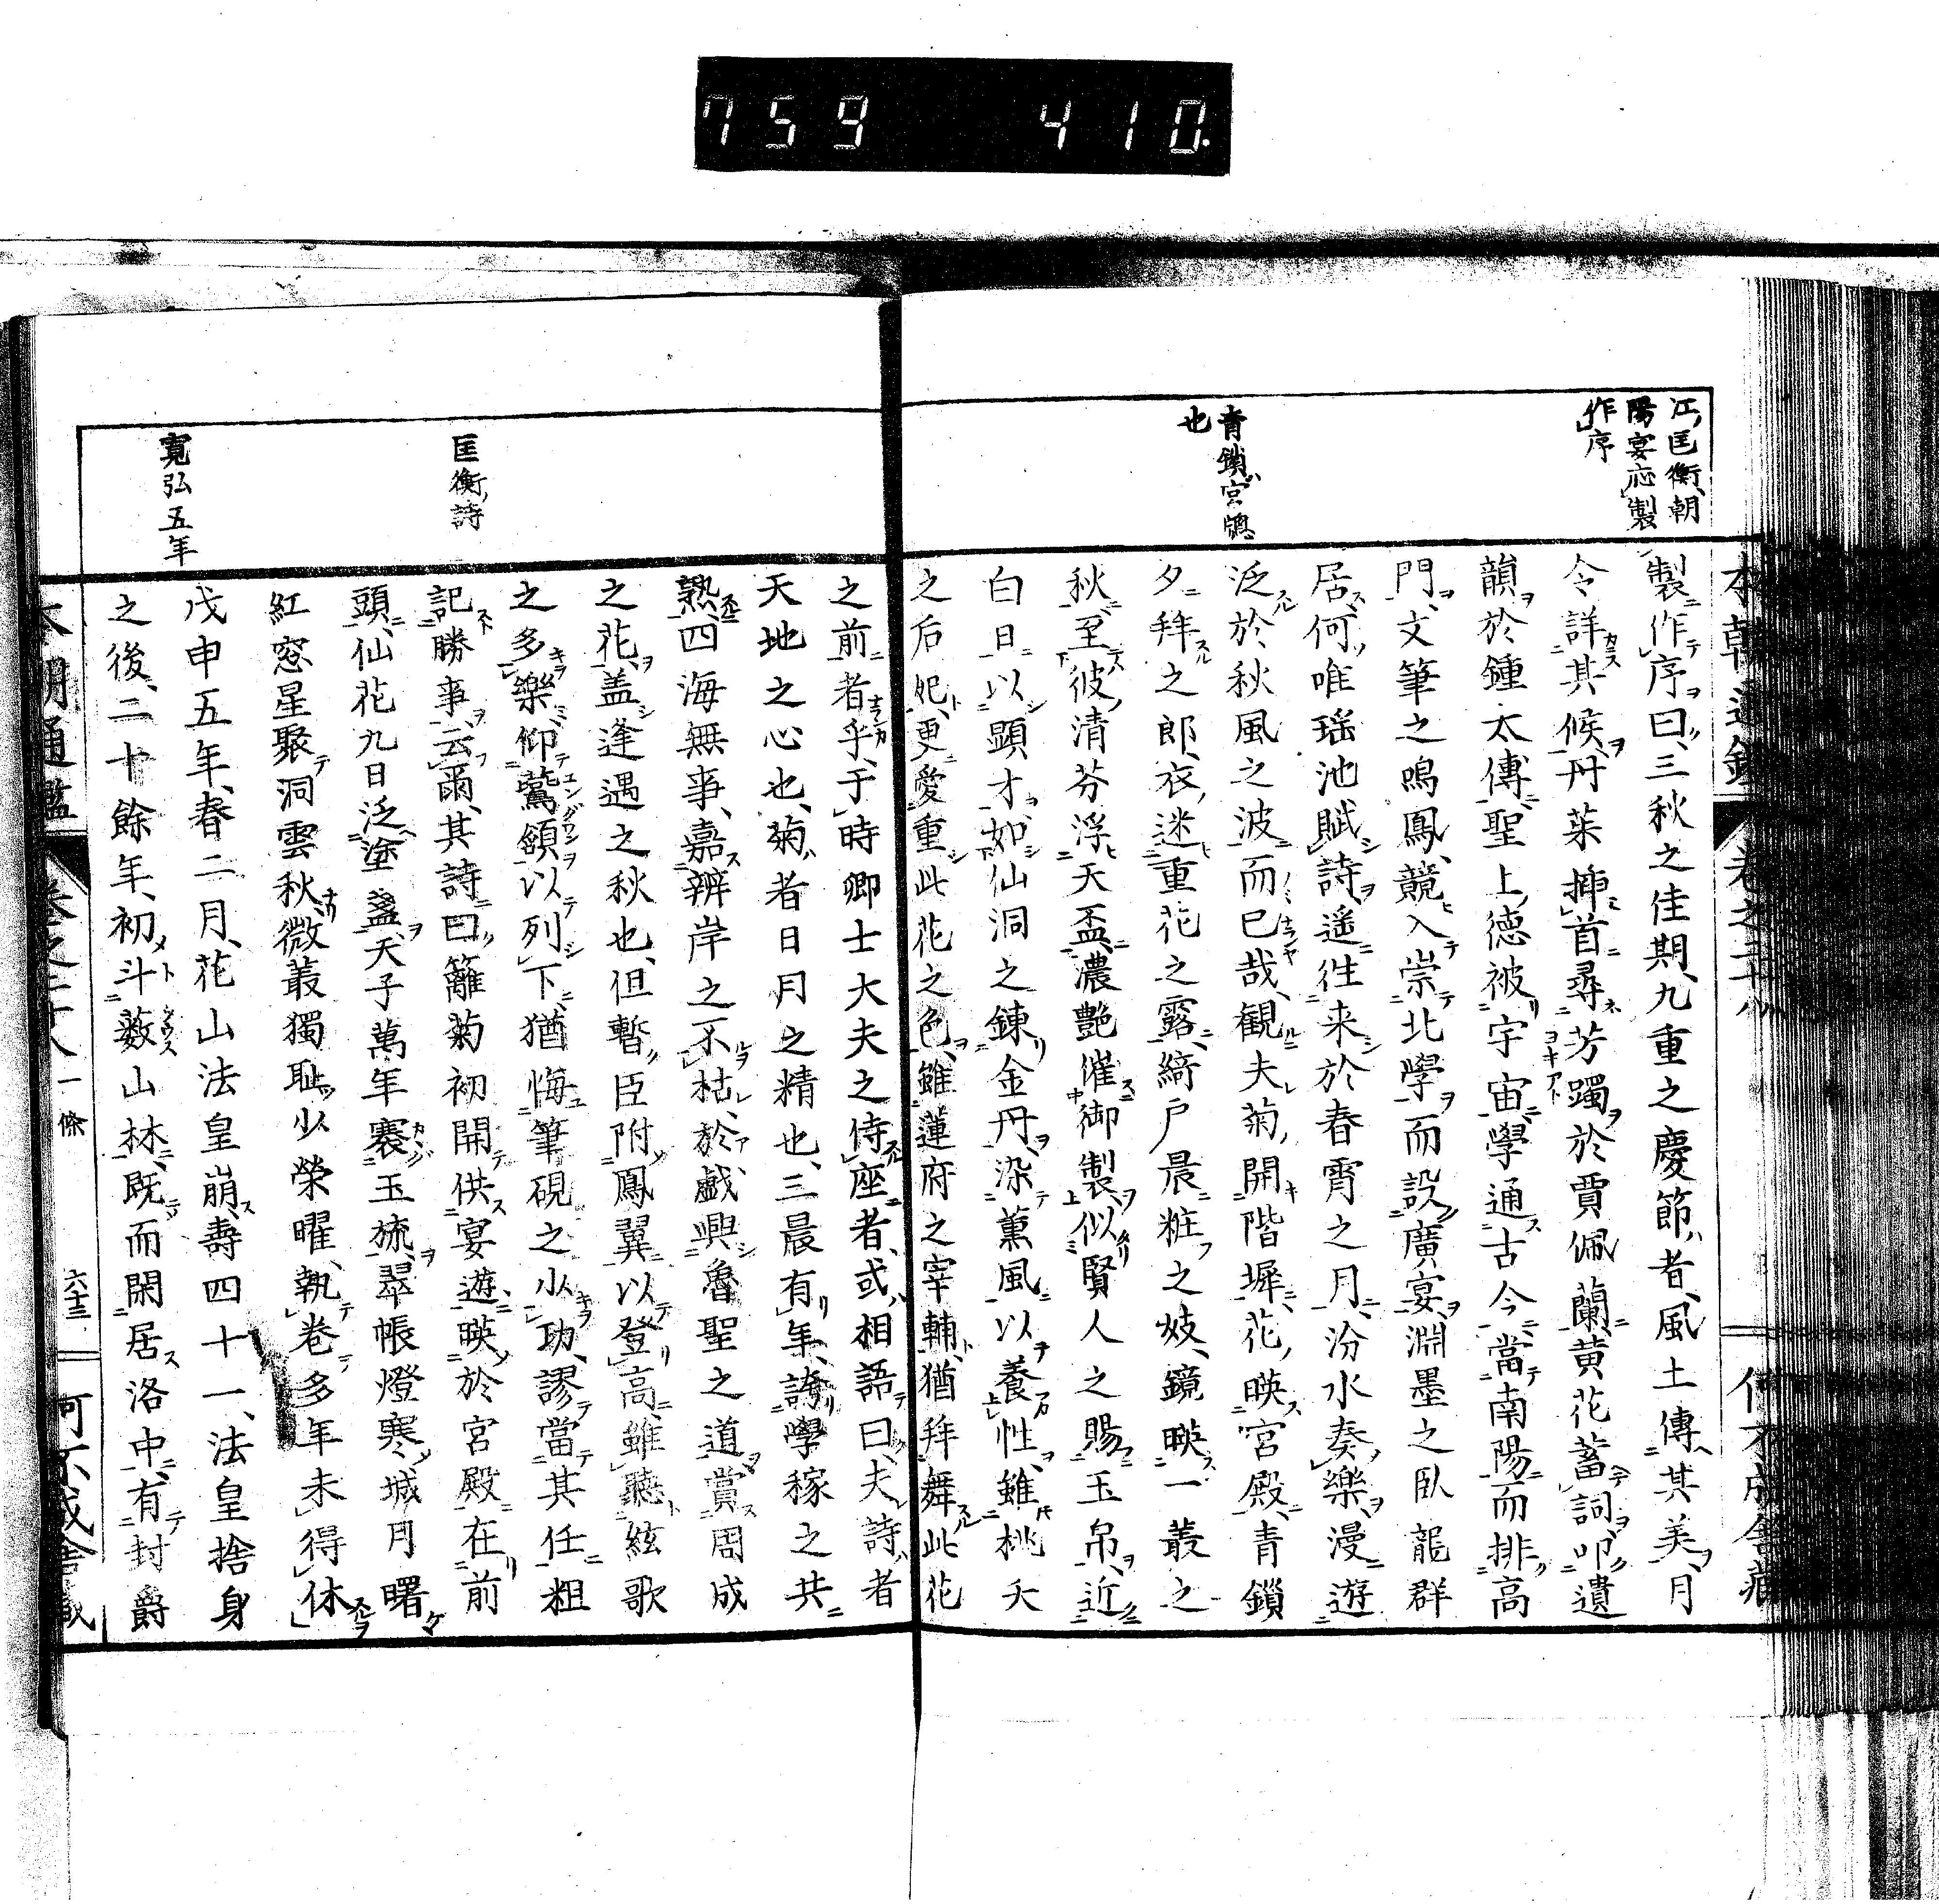 759 410.
江匡衡朝
陽宴応製
作序
青鎖宮牕
也
製作序曰三秋之佳期九重之慶節者風土傳其美月
令詳其候丹茱挿首尋芳躅於賈佩蘭黄花蓄詞叩遺
韻於鍾太傳聖上德被宇宙學通古今當南陽而排高
門文筆之鳴鳳競入崇北學而設廣宴淵墨之臥龍群
居何唯瑶池賦詩遙徃来於春霄之月汾水奏樂漫遊
泛於秋風之波而已哉観夫菊開階墀花暎宮殿青鎖
夕拜之郎衣迷重花之露綺戸晨粧之妓鏡暎一叢之
秋至彼清芬浮天盃濃艶催御製似賢人之賜玉帛近
白日以顕才如仙洞之錬金丹染薫風以養性雖桃夭
之后妃更愛重此花之色雖蓮府之宰輔猶拜舞此花
之前者乎于時卿士大夫之侍座者或相語曰夫詩者
天地之心也菊者日月之精也三晨有年誇學稼之共
熟四海無事嘉辨岸之不枯於戯興魯聖之道賞周成
之花盖逢遇之秋也但暫臣附鳳翼以登高雖聽絃歌
之多樂仰鷰頷以列下猶悔筆硯之少功謬當其任粗
記勝事云爾其詩曰籬菊初開供宴遊暎於宮殿在前
頭仙花九日泛塗盞天子萬年褰玉旒翠帳燈寒城月曙
紅窓星聚洞雲秋微叢獨耻少榮曜執巻多年未得休
戊申五年春二月花山法皇崩壽四十一法皇捨身
之後二十餘年初斗薮山林既而閑居洛中有封爵
匡衡詩
寛弘五年
本朝通鑑 巻之二十八 一條 六十三 何不成舎蔵